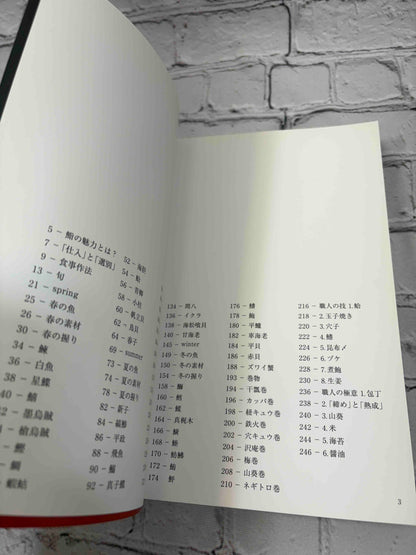 5 – 鮨の魅力とは?
7 – 「仕入」と「選別」
9 – 食事作法
13 – 旬
21 – spring
25 – 春の魚
26 – 春の素材
30 – 春の握り
34 –
36 – 白魚
38 – 星鰈
40 –
42 – 墨烏賊
46 – 槍烏賊
鰹
蝦蛄
52 – 海胆
54 – 蛤
56 –
58 – 小柱
60 – 帆立貝
62 – 鳥貝
64 – 春子
69 – summer
73 – 夏の魚
74 – 夏の素材
78 – 夏の握り
82 – 新子
84 – 縞鯵
86 – 平政
88 – 飛魚
90 – 鱚
92 – 真子鰈
134 – 間八
136 – イクラ
138 – 海松喰貝
140 – 甘海老
145 – winter
149 – 冬の魚
150 – 冬の素材
154 – 冬の握り
158 –
162 – 鱈
164 – 真梶木
166 –
168 –
170 – 魴鮄
172 –
174 – 鮃
176 –
178 – 鮑
180 – 平鱸
182 – 車海老
184 – 平貝
186 – 赤貝
188 – ズワイ蟹
193 – 巻物
194 – 干瓢巻
196 – カッパ巻
198 – 紐キュウ巻
200 – 鉄火巻
202 – 穴キュウ巻
204 – 沢庵巻
206 – 梅巻
208 – 山葵巻
210 – ネギトロ巻
216 – 職人の技 1. 蛤
218 – 2. 玉子焼き
220 – 3. 穴子
222 – 4.
224 – 5. 昆布〆
226 – 6. ヅケ
228 – 7. 煮鮑
230 – 8. 生姜
236 – 職人の極意 1. 包丁
238 – 2. 「締め」と「熟成」
240 – 3. 山葵
242 – 4. 米
244 – 5. 海苔
246 – 6. 醤油
3